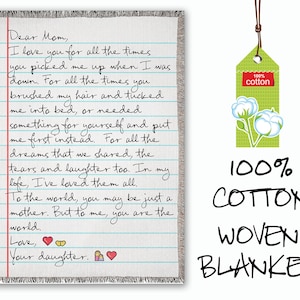 Dear Mom,
I love you for all the times
you picked me up when I was
down. For all the times you
brushed my hair and tucked
me into bed, or needed
something for yourself and put
me first instead. For all the
dreams that we shared, the
tears and laughter too. In my
life, I've loved them all.
To the world, you may be just a
mother. But to me, you are the
world.
Love,
Your daughter.
100%
cotton
100%
COTTON
WOVEN
BLANKE